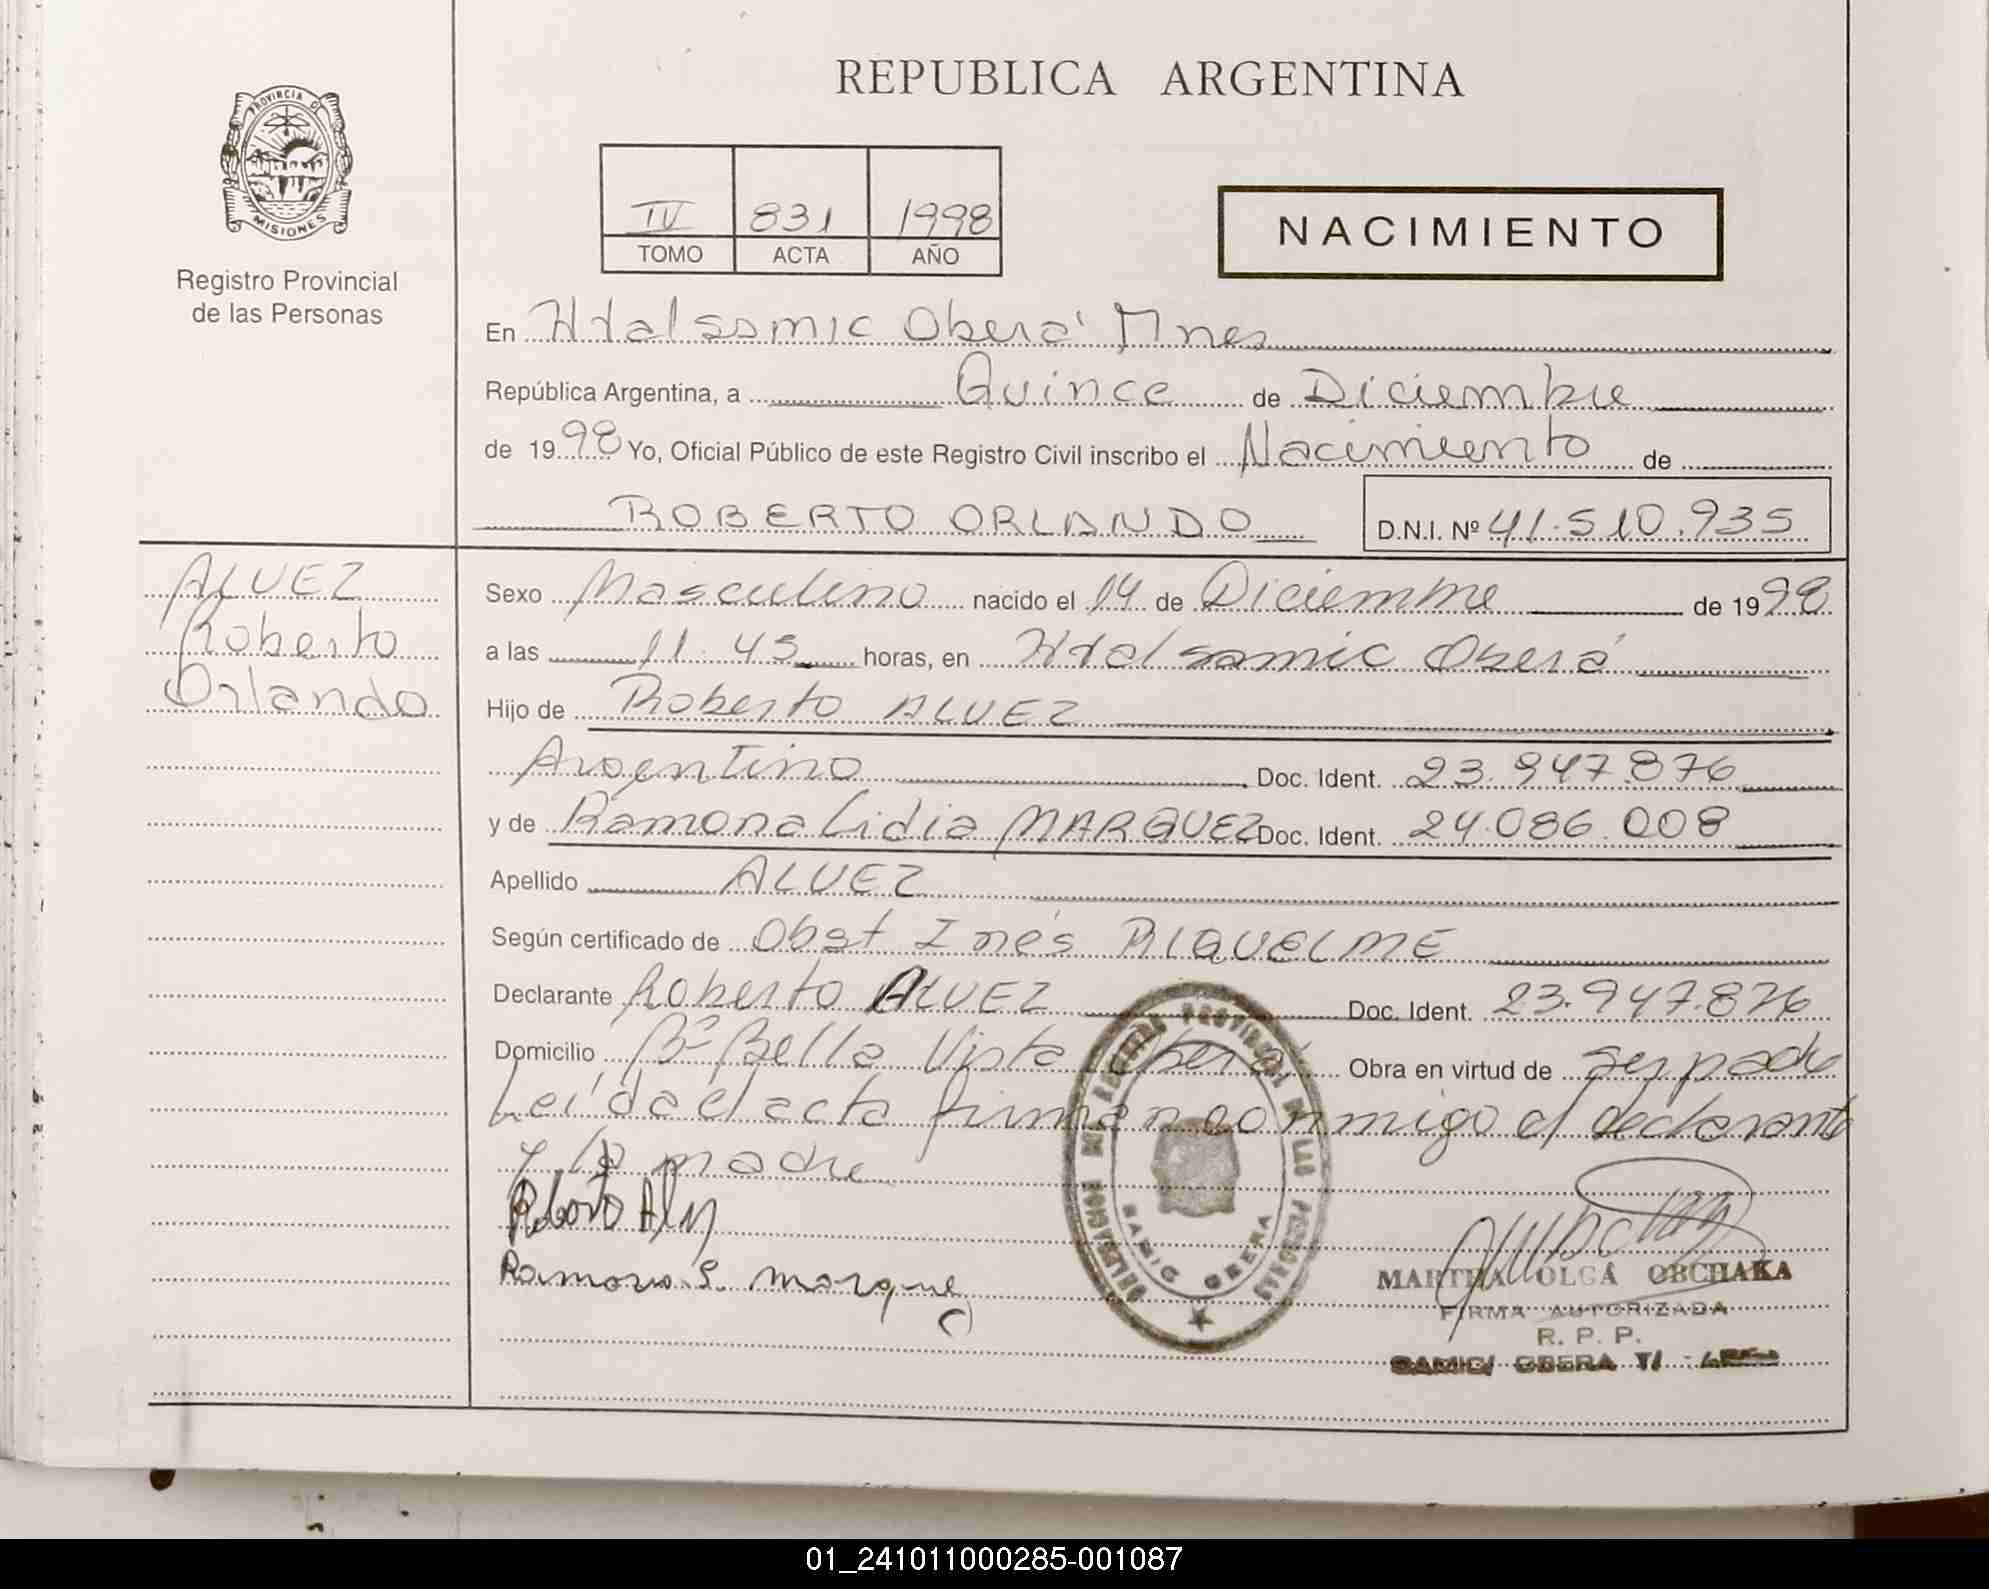 REPUBLICA ARGENTINA
PROVINCIA D
MISIONES
Registro Provincial
de las Personas
IV 831 1998
TOMO ACTA AÑO
NACIMIENTO
En Htal samic Oberá Mnes
República Argentina, a Quince de Diciembre
de 1998 Yo, Oficial Público de este Registro Civil inscribo el Nacimiento de
ROBERTO ORLANDO D.N.I. Nº 41.510.935
ALVEZ
Roberto
Orlando
Sexo Masculino nacido el 14 de Diciembre de 1998
a las 11.45 horas, en Htal samic Oberá
Hijo de Roberto ALVEZ
Argentino Doc. Ident. 23.947.876
y de Ramona Lidia MARQUEZ Doc. Ident. 24.086.008
Apellido ALVEZ
Según certificado de Obst Inés RIQUELME
Declarante Roberto ALVEZ Doc. Ident. 23.947.876
Domicilio Bº Bella Vista Oberá Obra en virtud de ser padre
Leída el acta firman conmigo el declarante
y la madre
Roberto Alvez
Ramona L. Marquez
PROVINCIAL DE LAS PERSONAS
SAMIC OBERA
MARTHA OLGA OBCHAKA
FIRMA AUTORIZADA
R. P. P.
SAMIC/ OBERA
01_241011000285-001087